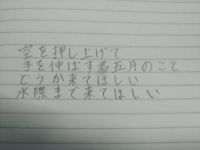 空を押し上げて
手を伸ばす君五月のこと
どうか来てほしい
水際まで来てほしい